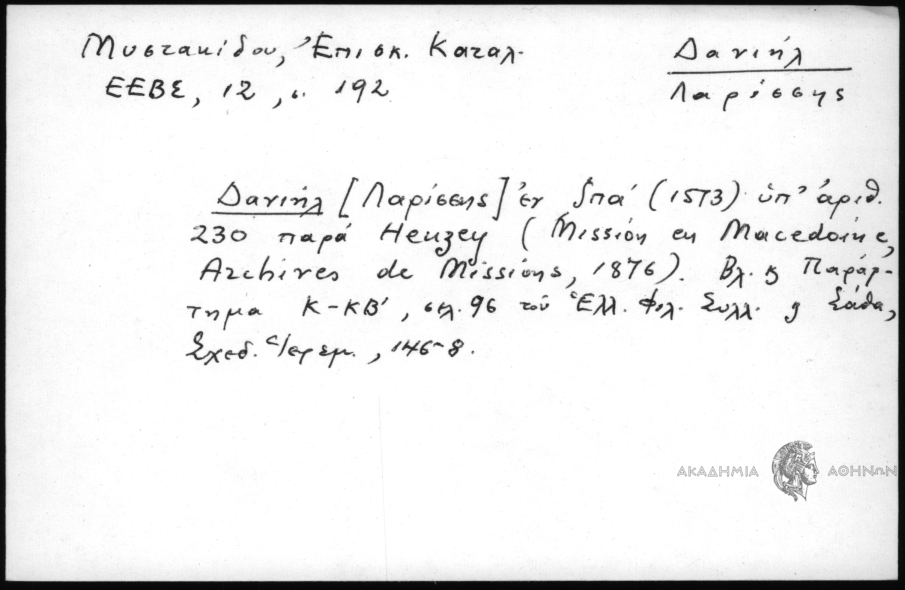 Μυστακίδου, Ἐπισκ. Καταλ.
ΕΕΒΣ, 12, σ. 192
Δανιήλ
Λαρίσσης
Δανιήλ [Λαρίσσης] ἐν ͵ζπά (1573) ὑπ' ἀριθ.
230 παρά Heuzey (Missión en Macedoine,
Archives de Missions, 1876). Βλ. κ Παράρ-
τημα Κ-ΚΒ', σελ. 96 τοῦ Ἑλλ. Φιλ. Συλλ. Σάθα,
Σχεδ. Ἱερεμ., 146-8.
ΑΚΑΔΗΜΙΑ ΑΘΗΝΩΝ